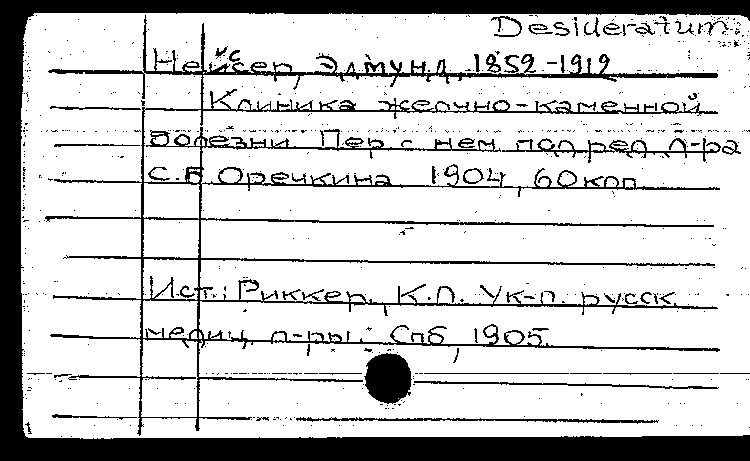 Desideratum.
Нейссер, Эдмунд, 1852-1912
Клиника желчно-каменной
болезни. Пер. с нем. под ред. д-ра
С.Б. Оречкина. 1904, 60 коп.
Ист.: Риккер, К.Л. Ук-л. русск.
медиц. л-ры. Спб, 1905.